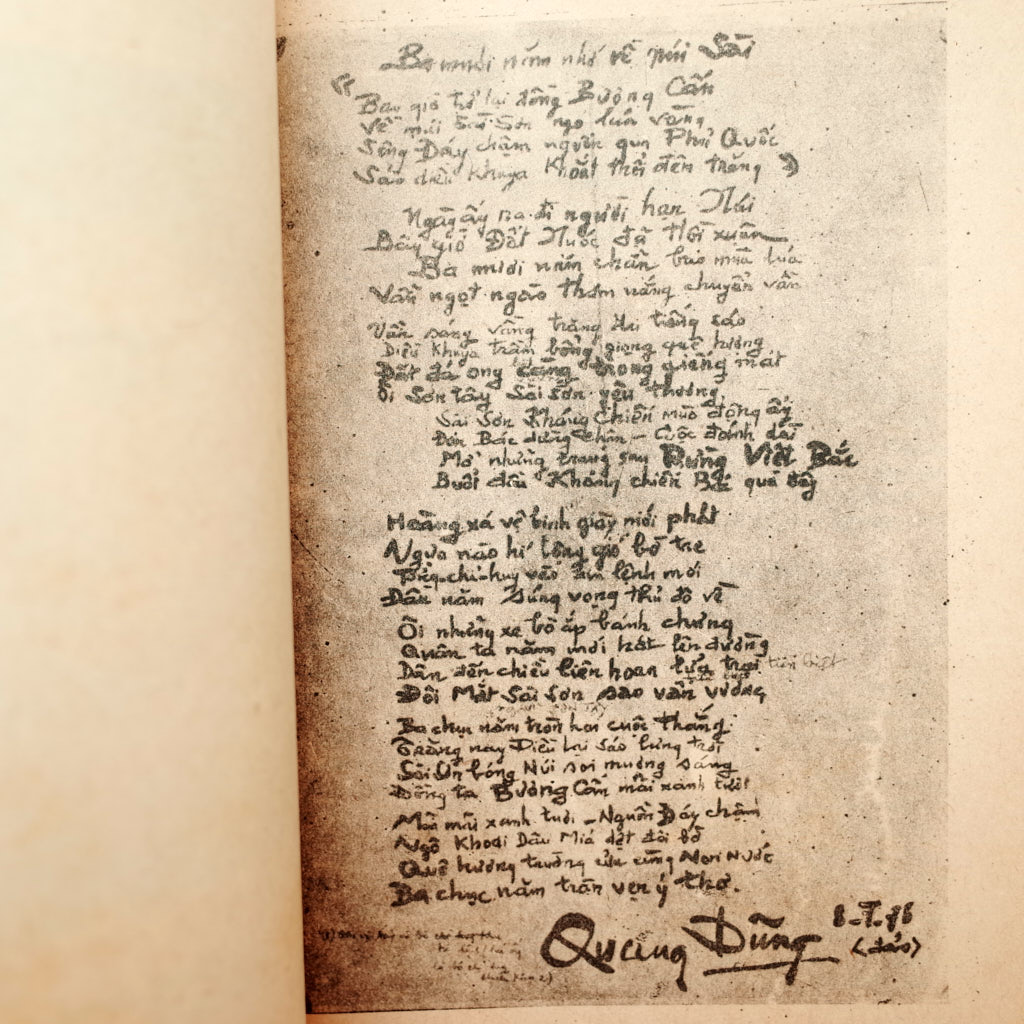 Ba mươi năm nhớ về núi Sài
"Bao giờ trở lại đồng Bương Cấn
Về núi Sài Sơn ngó lúa vàng
Sông Đáy chậm nguồn qua Phủ Quốc
Sáo diều khuya khoắt thổi đêm trăng"
Ngày ấy ra đi người hẹn Núi
Bây giờ Đất Nước đã Hồi xuân
Ba mươi năm chẵn bao mùa lúa
Vẫn ngọt ngào thơm nắng chuyển vần
Vẫn sáng vầng trăng tiếng sáo
Diều Khuya trầm bổng giọng quê hương
Đất đá ong trong giếng mát
Ôi Sơn tây Sài sơn yêu thương
Sài Sơn Kháng Chiến mùa động ấy
Đón Bác dừng chân - Cuộc đổi
Mở những trang sau Rừng Việt Bắc
Buổi đầu Kháng chiến Bác qua đây
Hoàng xá vệ binh giày mới phát
Ngựa nào hí lộng gió bờ tre
chỉ-huy vừa lệnh mới
Đầu năm Súng vọng thủ đô về
Ôi những xe bò ắp bánh chưng
Quân ta năm mới hát lên đường
Dân đến chiều liên hoan lửa trại
Đôi Mắt Sài Sơn sao vấn vương
Ba chục năm tròn hai cuộc thắng
Trăng nay Diều lại sáo lưng trời
Sài Sơn bóng Núi soi mương sáng
Đồng ta Bương Cấn mãi xanh tươi
Mãi mãi xanh tươi - Nguồn Đáy chậm
Ngô Khoai Dâu Mía dạt đôi bờ
Quê hương trường cửu cùng Non Nước
Ba chục năm tròn vẹn ý thơ.
Quang Dũng